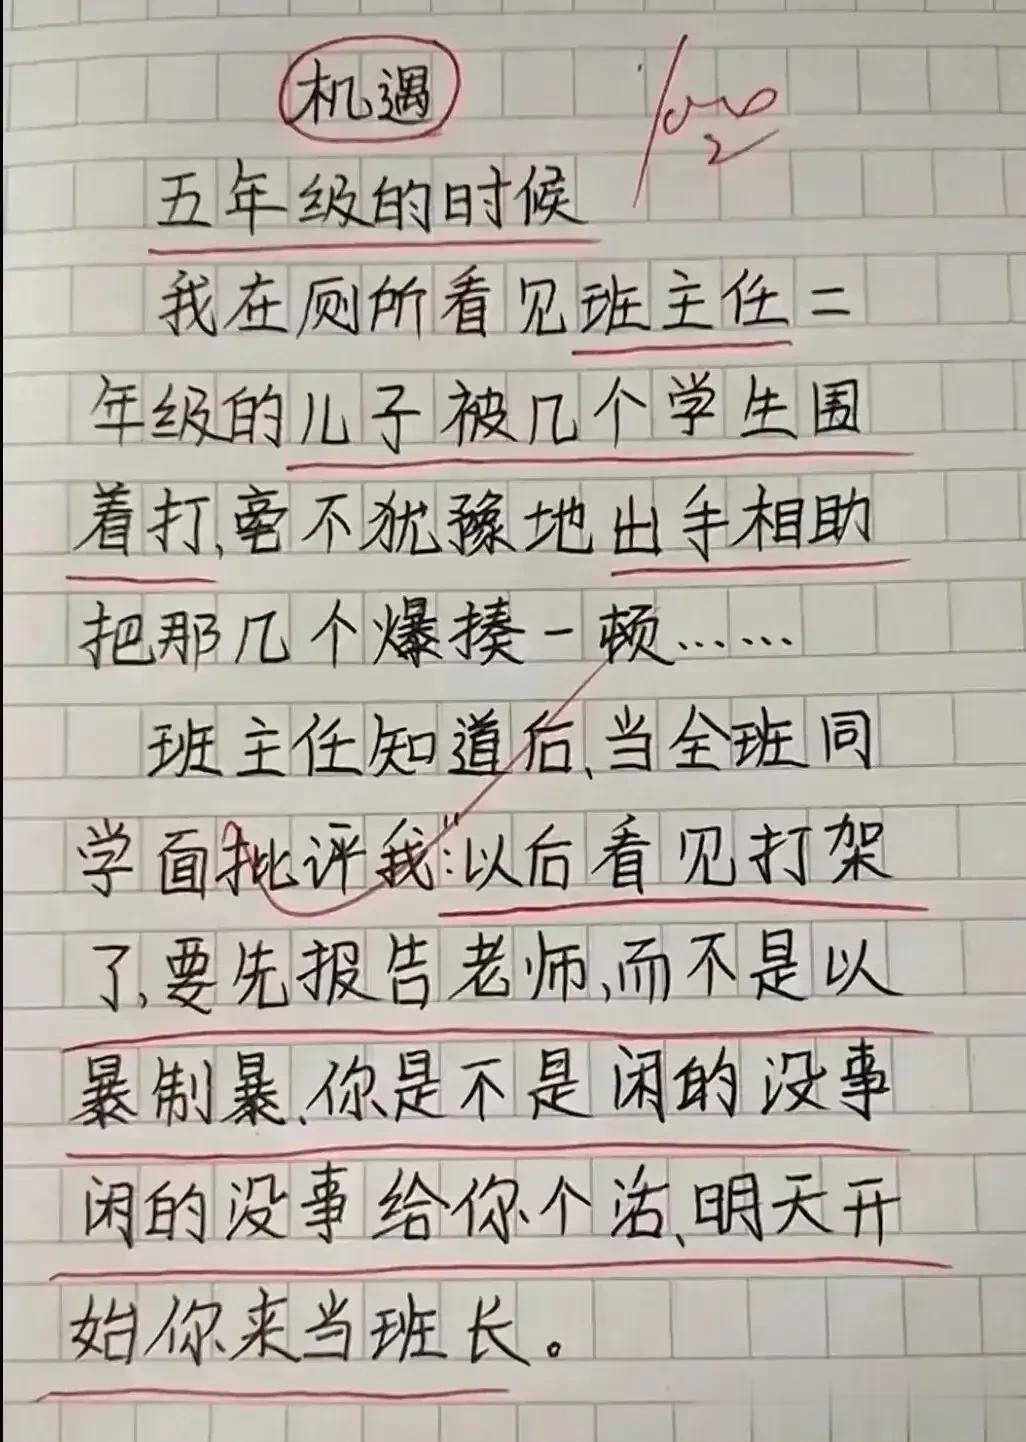 机遇
五年级的时候
我在厕所看见班主任二
年级的儿子被几个学生围
着打,毫不犹豫地出手相助
把那几个爆揍一顿……
班主任知道后、当全班同
学面批评我:"以后看见打架
了,要先报告老师,而不是以
暴制暴、你是不是闲的没事
闲的没事给你个活、明天开
始你来当班长。